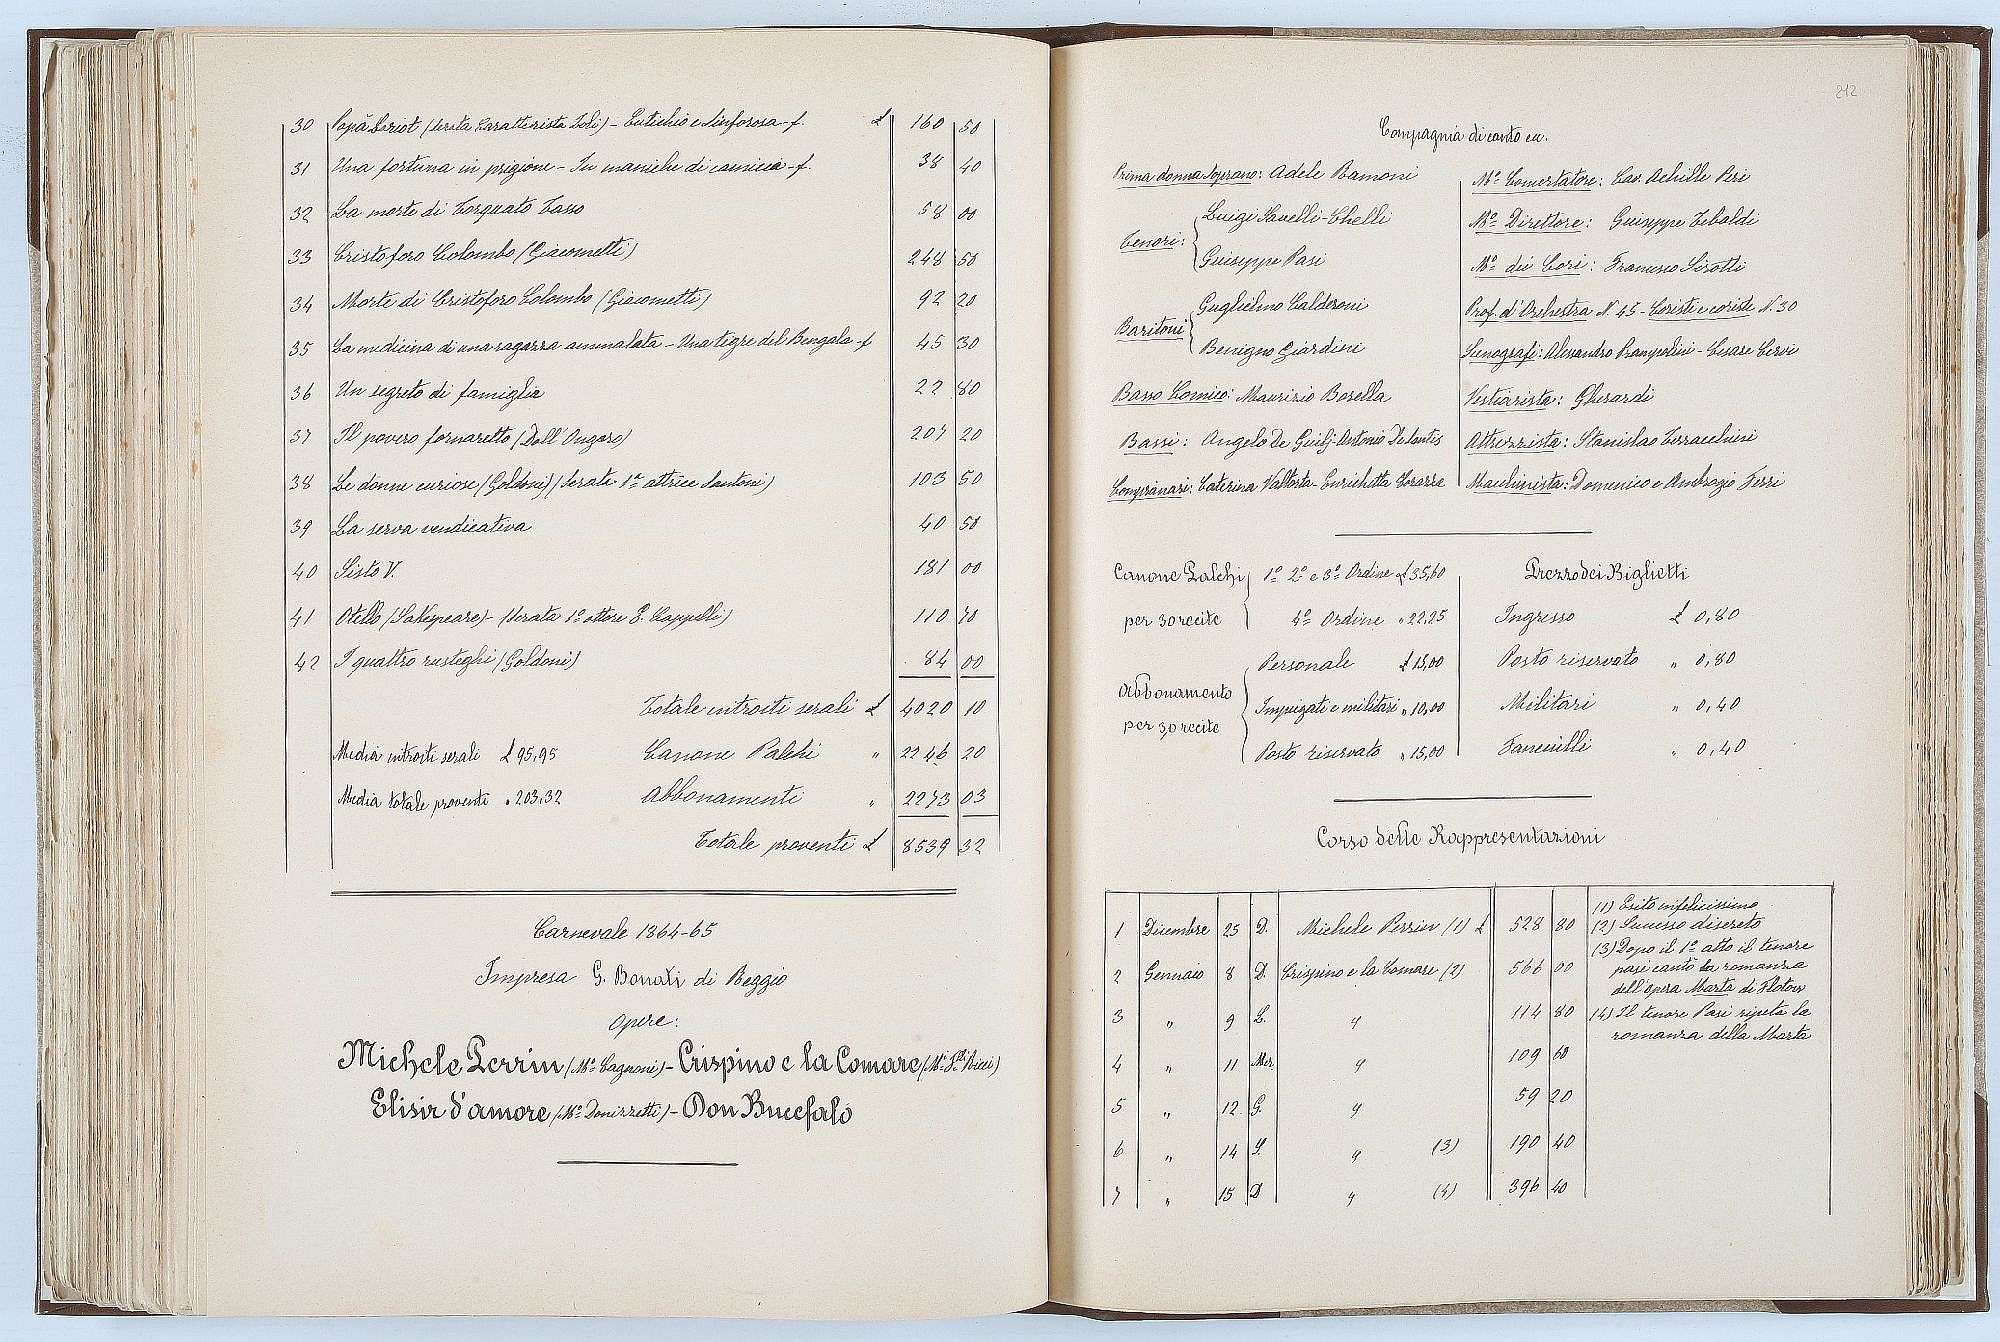 30 Papà Loriot (Serata Caratterista Zoli) - Eutichio e Sinforosa - f. £ 160 50
31 Una fortuna in prigione - In maniche di camicia - f. 38 40
32 La morte di Torquato Tasso 58 00
33 Cristoforo Colombo (Giacometti) 248 50
34 Morte di Cristoforo Colombo (Giacometti) 92 20
35 La medicina di una ragazza ammalata - Una tigre del Bengala - f 45 30
36 Un segreto di famiglia 22 80
37 Il povero fornaretto (Dall'Ongaro) 207 20
38 Le donne curiose (Goldoni) (Serata 1ª attrice Santoni) 103 50
39 La serva vendicativa 40 50
40 Sisto V. 181 00
41 Otello (Sakspeare) - (Serata 1º attore G. Cappelli) 110 70
42 I quattro rusteghi (Goldoni) 84 00
Totale introiti serali £ 4020 10
Media introiti serali £ 95,95 Canone Palchi " 2246 20
Media totale proventi " 203,32 Abbonamenti " 2273 03
Totale proventi £ 8539 32
Carnevale 1864-65
Impresa G. Bonati di Reggio
Opere:
Michele Perrin (Mº Cagnoni) - Crispino e la Comare (Mi Flli Ricci)
Elisir d'amore (Mº Donizzetti) - Don Bucefalo
212
Compagnia di canto ecc.
Prima donna Soprano: Adele Ramoni
Tenori: Luigi Savelli-Chelli
Giuseppe Pasi
Baritoni Guglielmo Calderoni
Benigno Giardini
Basso Comico: Maurizio Borella
Bassi: Angelo De Giulj - Antonio De Santis
Comprimari: Caterina Valtorta Enrichetta Corazza
Mº Concertatore: Cav. Achille Peri
Mº Direttore: Giuseppe Tebaldi
Mº dei Cori: Francesco Sirotti
Prof. d'Orchestra N. 45 - Coristi e coriste N. 30
Scenografi: Alessandro Prampolini - Cesare Cervi
Vestiarista: Gherardi
Attrezzista: Stanislao Terracchini
Macchinista: Domenico e Ambrogio Ferri
Canone Palchi per 30 recite
1º 2º e 3º Ordine £ 35,60
4º Ordine " 22,25
Abbonamento per 30 recite
Personale £ 15,00
Impiegati e militari " 10,00
Posto riservato " 15,00
Prezzo dei Biglietti
Ingresso £ 0,80
Posto riservato " 0,80
Militari " 0,40
Fanciulli " 0,40
Corso delle Rappresentazioni
1 Dicembre 25 D. Michele Perrin (1) £ 528 80
2 Gennaio 8 D. Crispino e la Comare (2) 566 00
3 " 9 L. " 114 80
4 " 11 Mer " 109 60
5 " 12 G. " 59 20
6 " 14 S. " (3) 190 40
7 " 15 D " (4) 396 40
(1) Esito infelicissimo
(2) Successo discreto
(3) Dopo il 1º atto il tenore
Pasi cantò la romanza
dell'opera Marta di Flotow
(4) Il tenore Pasi ripeté la
romanza della Marta